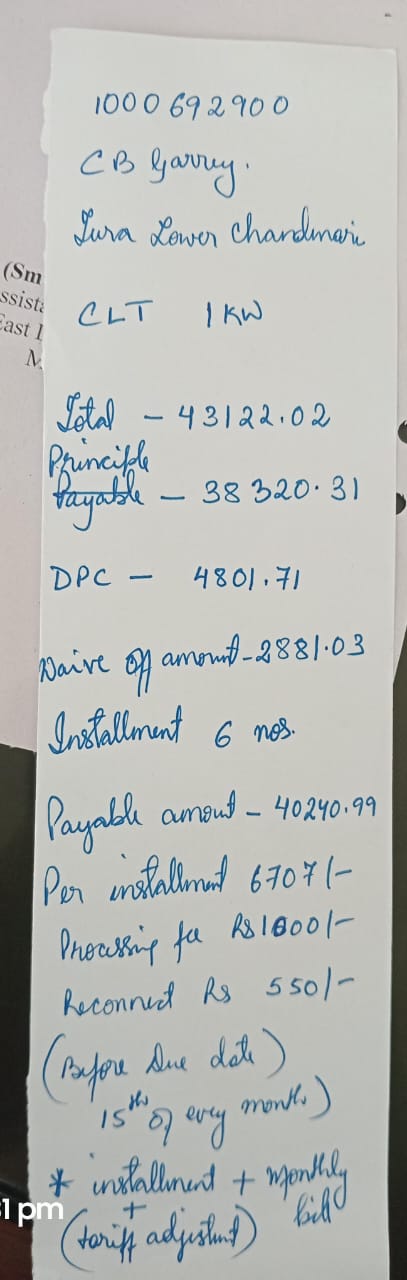 1000692900
CB Garrey.
Tura Lower Chandmari
(Sm
ssista
East I
M
CLT 1 KW
Total - 43122.02
Principle
Payable - 38320.31
DPC - 4801.71
Waive off amount - 2881.03
Installment 6 nos.
Payable amout - 40240.99
Per installment 6707/-
Processing fee Rs 1000/-
Reconnect Rs 550/-
(Before Due date)
15th of every month)
* installment + Monthly bill
+
(tariff adjustment)
1 pm